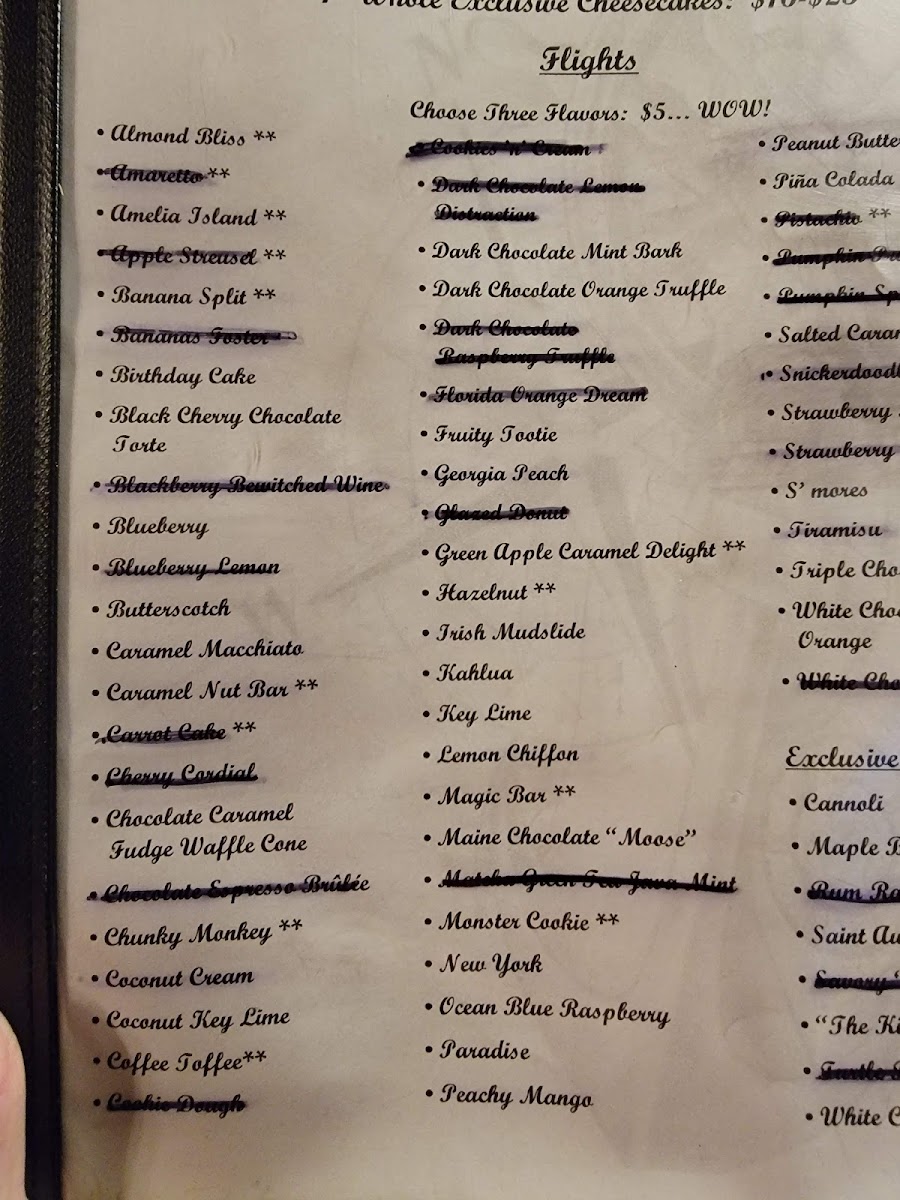 Whole Exclusive Cheesecakes:
Flights
Choose Three Flavors: $5... WOW!
• Almond Bliss **
• Amaretto **
• Amelia Island **
• Apple Streusel **
• Banana Split **
• Bananas Foster
• Birthday Cake
• Black Cherry Chocolate
Torte
• Blackberry Bewitched Wine
• Blueberry
• Blueberry Lemon
• Butterscotch
• Caramel Macchiato
• Caramel Nut Bar **
• Carrot Cake **
• Cherry Cordial
• Chocolate Caramel
Fudge Waffle Cone
• Chocolate Espresso Brûlée
• Chunky Monkey **
• Coconut Cream
• Coconut Key Lime
• Coffee Toffee**
• Cookie Dough
• Cookies 'n' Cream
• Dark Chocolate Lemon
Distraction
• Dark Chocolate Mint Bark
• Dark Chocolate Orange Truffle
• Dark Chocolate
Raspberry Truffle
• Florida Orange Dream
• Fruity Tootie
• Georgia Peach
• Glazed Donut
• Green Apple Caramel Delight **
• Hazelnut **
• Irish Mudslide
• Kahlua
• Key Lime
• Lemon Chiffon
• Magic Bar **
• Maine Chocolate “Moose”
• Matcha Green Tea Java Mint
• Monster Cookie **
• New York
• Ocean Blue Raspberry
• Paradise
• Peachy Mango
• Peanut Butte
• Piña Colada
• Pistachio **
• Pumpkin
• Pumpkin Sp
• Salted Caram
• Snickerdoodl
• Strawberry
• Strawberry
• S' mores
• Tiramisu
• Triple Cho
• White Choc
Orange
• White Cho
Exclusive
• Cannoli
• Maple B
• Rum Ra
• Saint Au
• Savory
• “The Ki
• Turtle
• White C